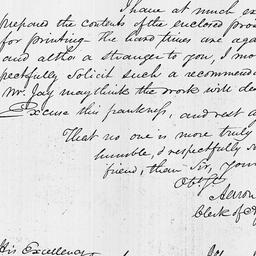 I have at much ex
prepared the contents of the enclosed pros
for printing. The hard times are aga
and altho a stranger to you, I mo
pectfully Solicit such a recommend
Mr. Jay may think the work will des
Excuse this frankness, and rest a
That no one is more truly
humble, & respectfully
friend, than Sir, your
Obt. St.
Aaron
Clerk of
His Excellency